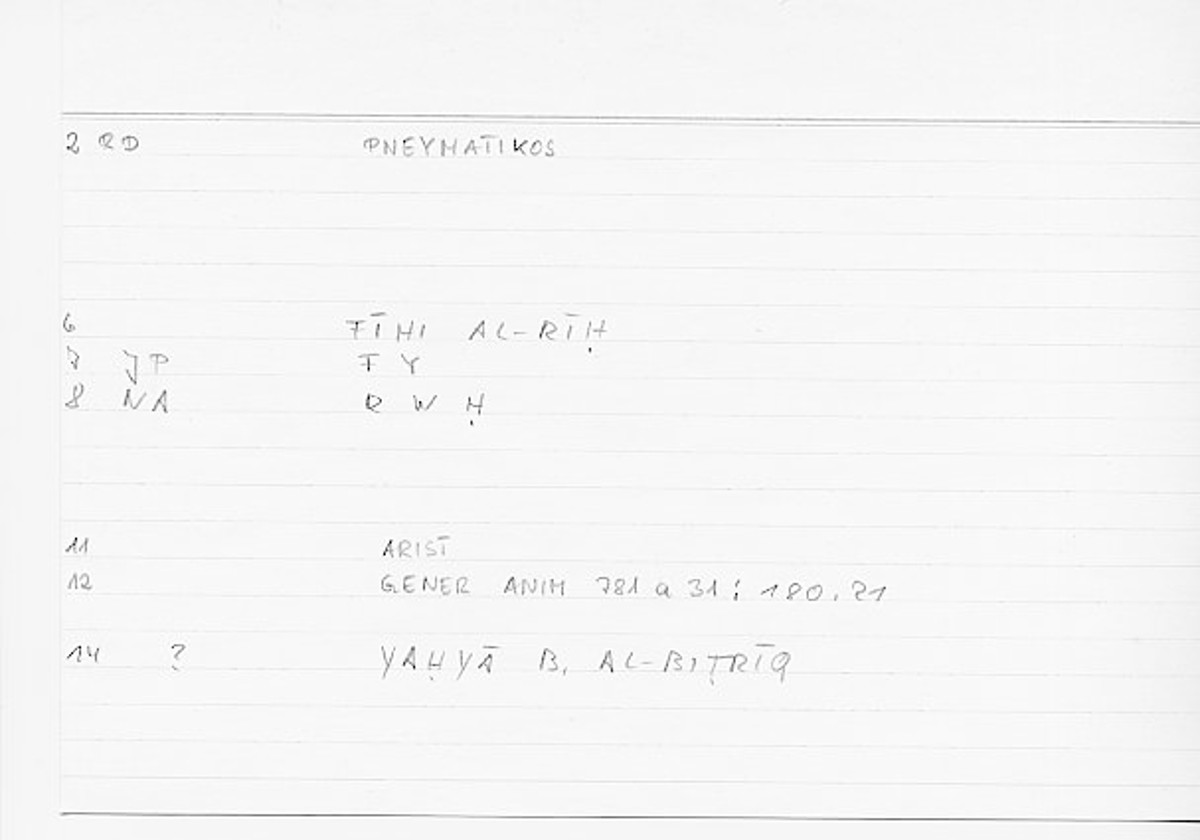 2 RD PNEYMATIKOS
6 FĪHI AL-RĪḤ
7 JP FY
8 NA R W Ḥ
11 ARIST
12 GENER ANIM 781 a 31 ; 180.21
14 ? YAḤYĀ B. AL-BIṬRĪQ